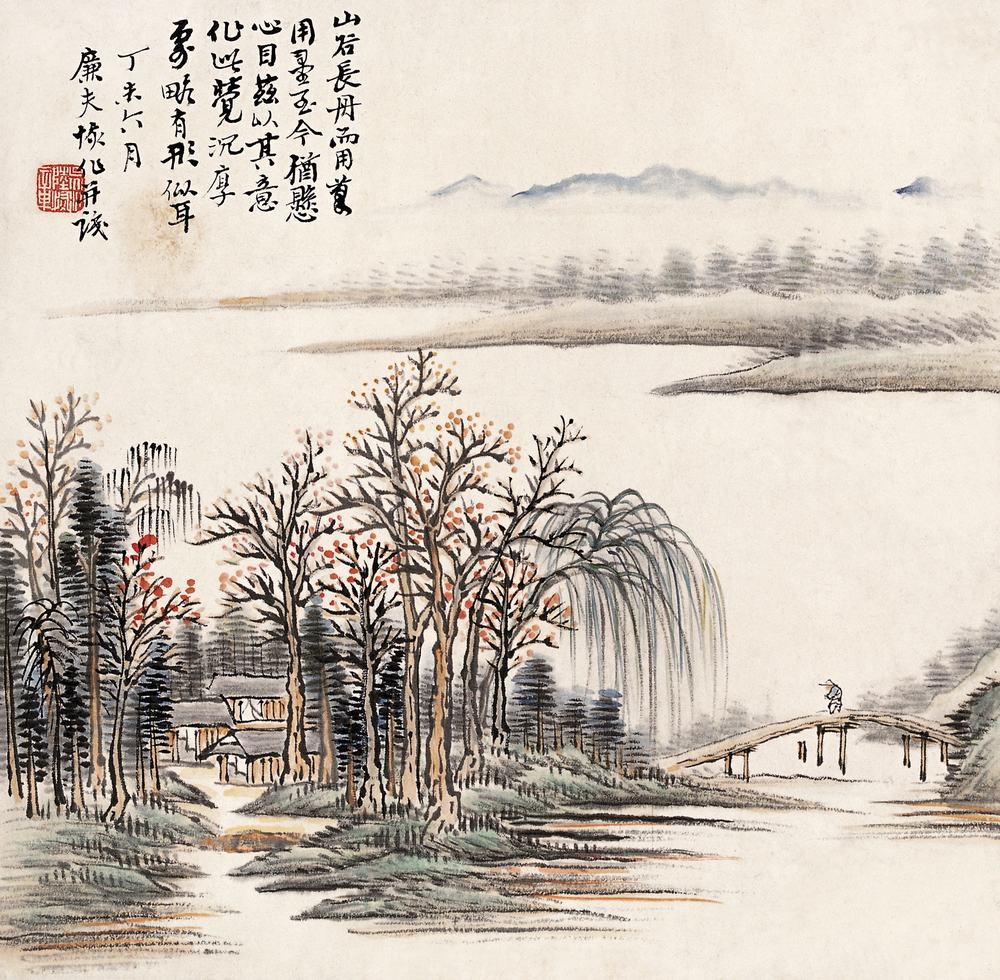 山谷長丹而用蒼
用墨至今猶懸
心目茲以其意
作此覺沉厚
處略有形似耳
丁未六月
廉夫恢作并識